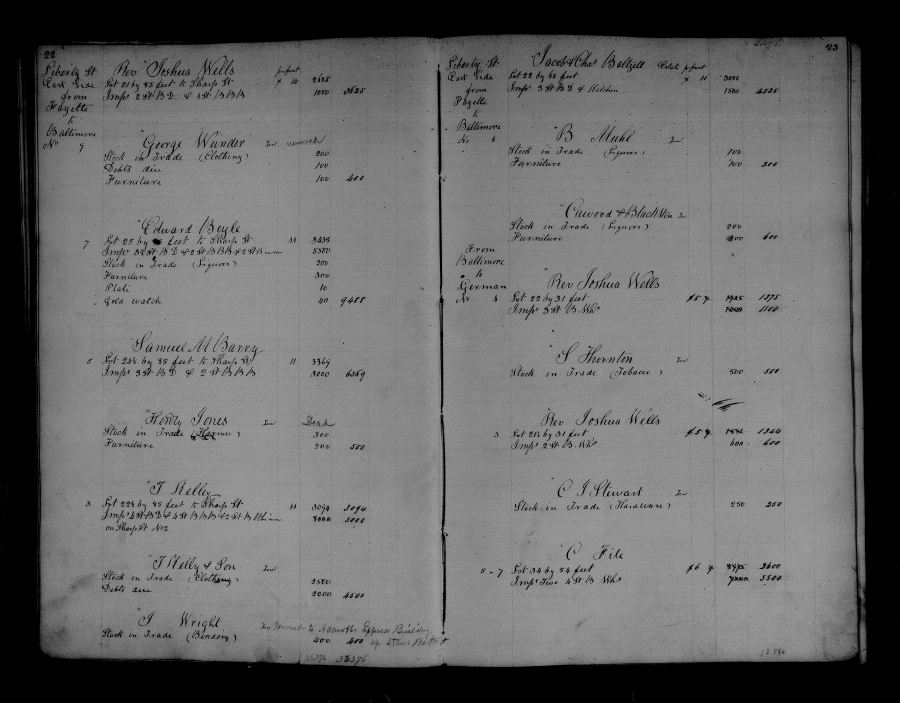 22
Liberty St
East Side
from
Fayette
to
Baltimore
No 9
Rev Joshua Wells
Lot 21 by 85 feet to Sharp St 2625
Imps 2 St B D & 1 St B B B 1000 3625
George Wunder removed
Stock in Trade (Clothing) 200
Debts due 100
Furniture 100 400
Edward Boyle
7 Lot 25 by feet to Sharp St 11 3438
Imps 3 St B D & 2 St B B B & 2 St B 5500
Stock in Trade (Liquors) 200
Furniture 300
Plate 10
Gold watch 40 9488
Samuel M Barry
5 Lot 24½ by 85 feet to Sharp St 11 3369
Imps 3 St B D & 2 St B B B 3000 6369
Henry Jones Dead
Stock in Trade (Harness) 300
Furniture 200 500
T Kelley
3 Lot 22½ by 85 feet to Sharp St 11 3094 3094
Imps 4 St B D & 4 St B B B & 2 St B 5000
on Sharp St No 2
T Kelly & Son
Stock in Trade (Clothing) 2500
Debts due 2000 4500
J Wright removed to Adams Express Building
Stock in Trade (Bindery) 400 400 up Stairs Balt St
36376
23
Liberty St
East Side
from
Fayette
to
Baltimore
No
Jacob & Chas Baltzell Estate
Lot 22 by 65 feet 11 3025
Imps 3 St B D & Kitchen 1500 4525
B Muhl
Stock in Trade (Liquors) 100
Furniture 100 200
Cawood & Blackston
Stock in Trade (Liquors) 200
Furniture 400 600
From
Baltimore
to
German
No
Rev Joshua Wells
Lot 22 by 31 feet 1375
Imps 3 St B Whs 1100
S Thornton
Stock in Trade (Tobacco) 500 500
Rev Joshua Wells
3 Lot 21½ by 31 feet 1344
Imps 2 St B Whs 600 600
C J Stewart
Stock in Trade (Hardware) 250 250
C Fite
5 - 7 Lot 34 by 54 feet 2600
Imps Two 4 St B Whs 5500